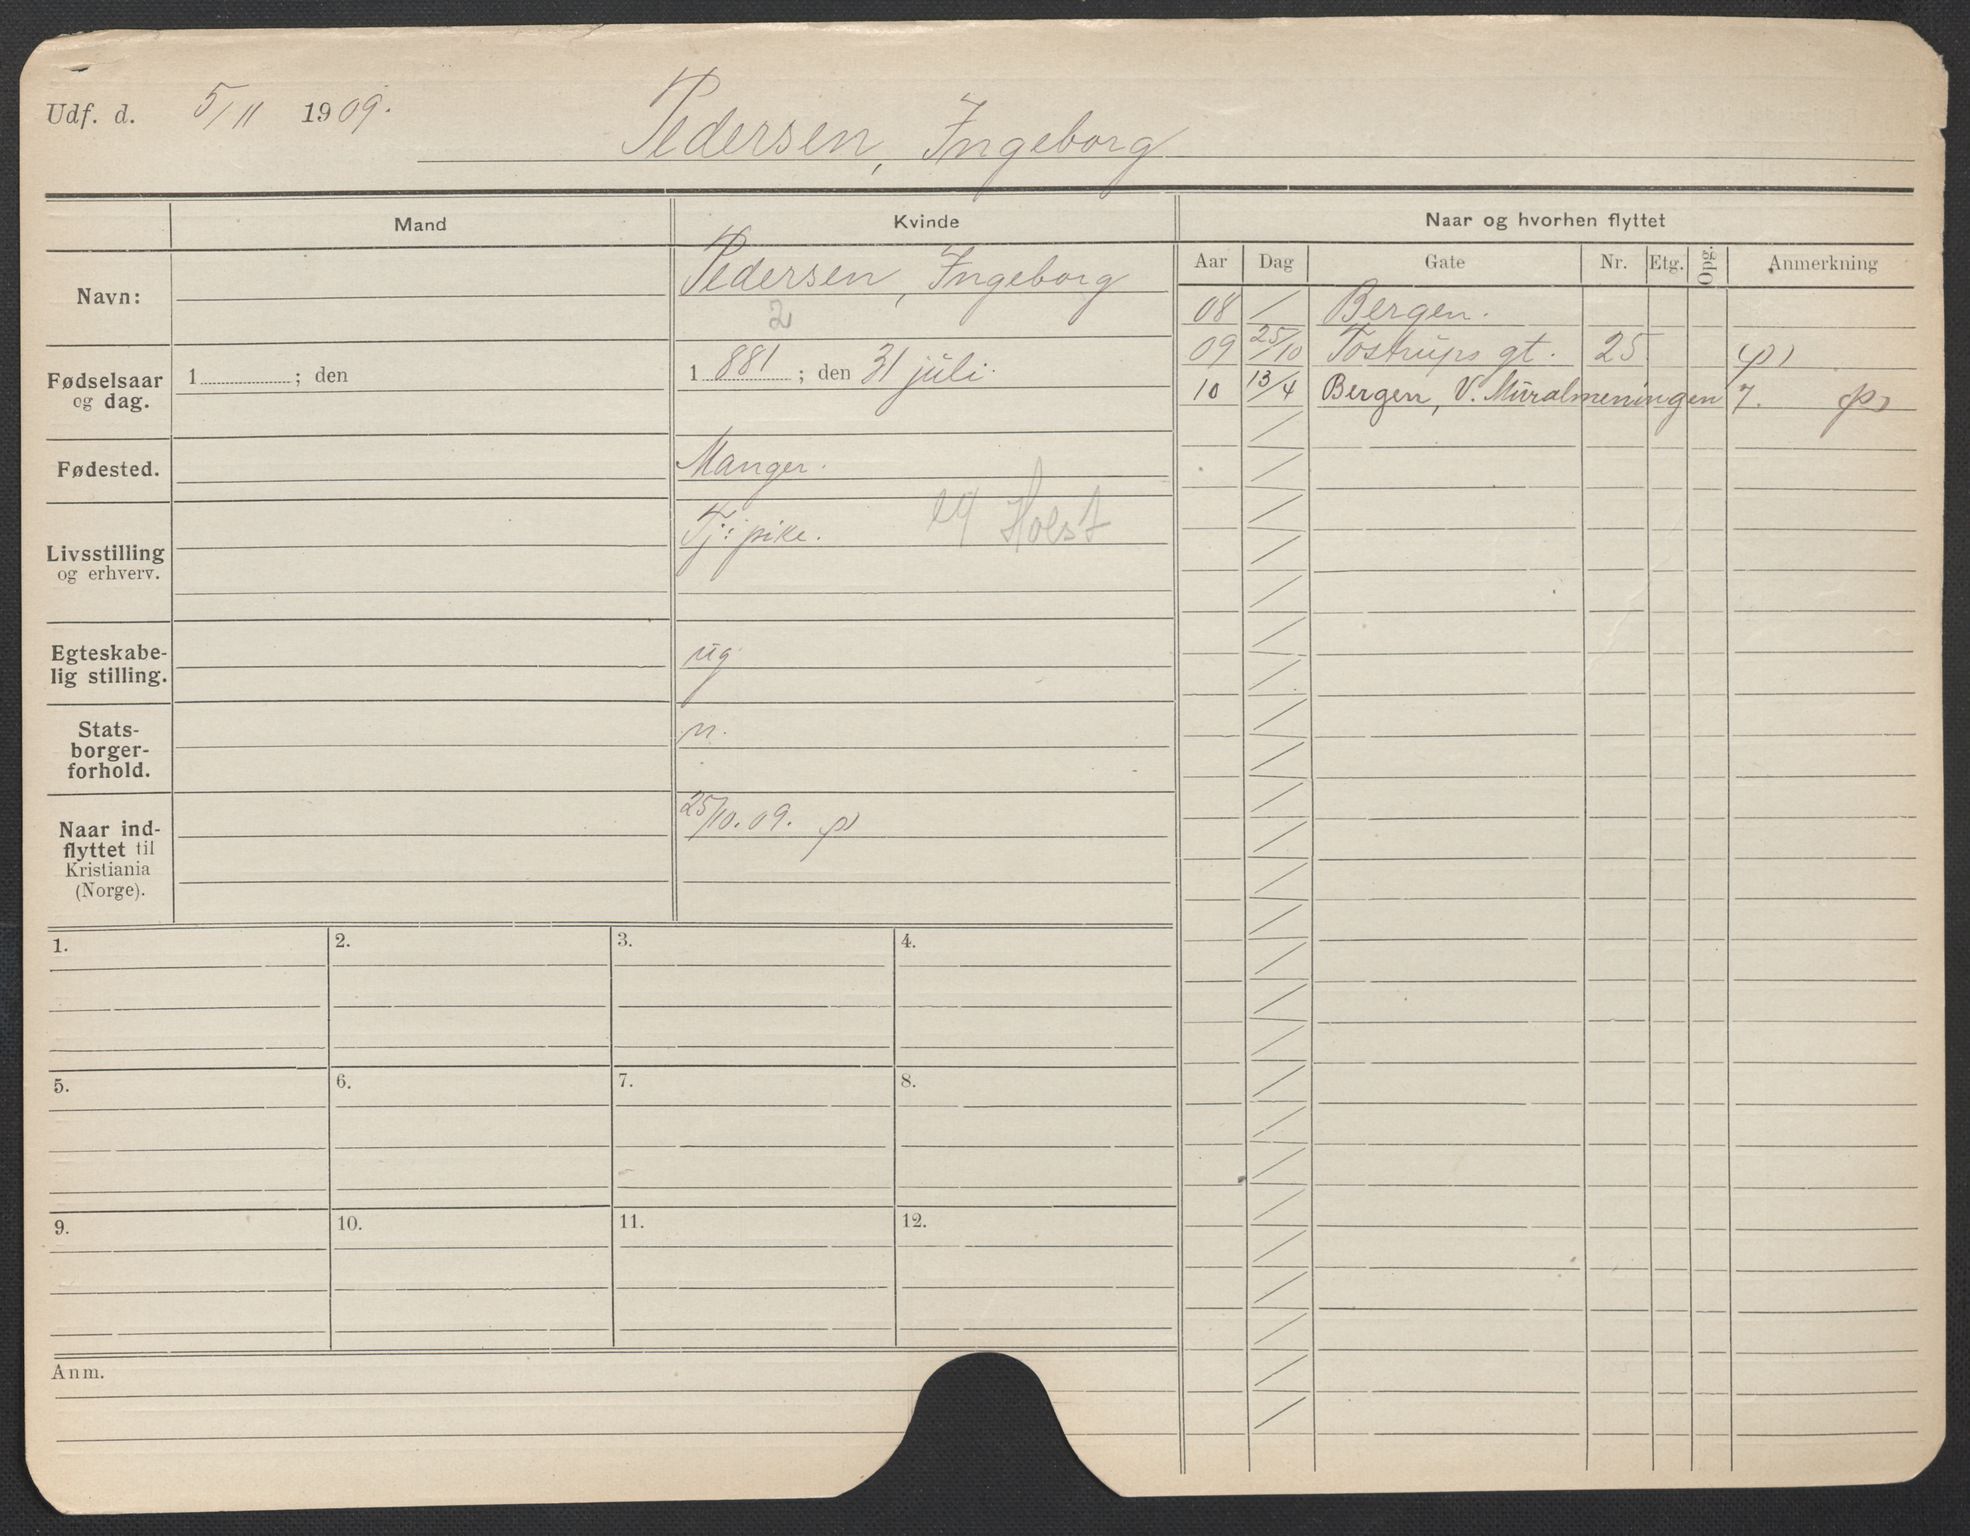 Udf. d. 5/11 1909.
Pedersen, Ingeborg
Mand
Kvinde
Naar og hvorhen flyttet
Aar Dag Gate Nr. Etg. Opg. Anmerkning
Navn:
Pedersen, Ingeborg
2
08 / Bergen.
09 25/10 Tostrups gt. 25
10 13/4 Bergen, V. Muralmeningen 7.
Fødselsaar
og dag.
1 ; den
1 881 ; den 31 juli.
Fødested.
Manger.
Livsstilling
og erhverv.
Tj: pike.
Holst
Egteskabe-
lig stilling.
ug
Stats-
borger-
forhold.
n.
Naar ind-
flyttet til
Kristiania
(Norge).
25/10. 09.
1. 2. 3. 4.
5. 6. 7. 8.
9. 10. 11. 12.
Anm.